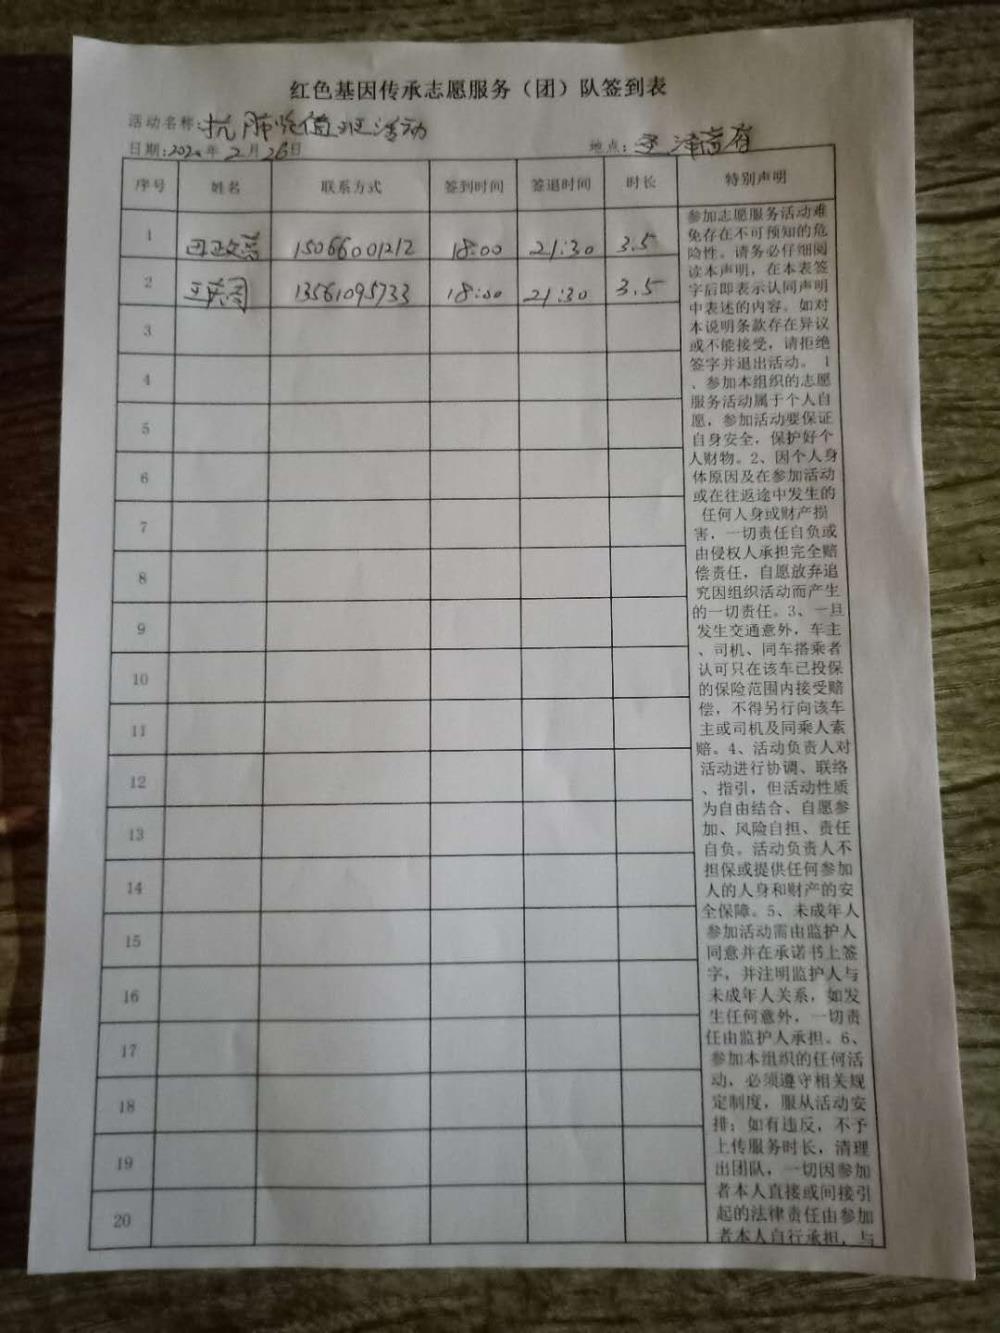 红色基因传承志愿服务（团）队签到表
活动名称：抗肺炎值班活动
日期：2020年2月26日 地点：
序号 姓名 联系方式 签到时间 签退时间 时长 特别声明
1 15066001212 18:00 21:30 3.5
2 13561095733 18:00 21:30 3.5
3
4
5
6
7
8
9
10
11
12
13
14
15
16
17
18
19
20
参加志愿服务活动难
免存在不可预知的危
险性。请务必仔细阅
读本声明，在本表签
字后即表示认同声明
中表述的内容。如对
本说明条款存在异议
或不能接受，请拒绝
签字并退出活动。 1
、参加本组织的志愿
服务活动属于个人自
愿，参加活动要保证
自身安全，保护好个
人财物。2、因个人身
体原因及在参加活动
或在往返途中发生的
任何人身或财产损
害，一切责任自负或
由侵权人承担完全赔
偿责任，自愿放弃追
究因组织活动而产生
的一切责任。3、一旦
发生交通意外，车主
、司机、同车搭乘者
认可只在该车已投保
的保险范围内接受赔
偿，不得另行向该车
主或司机及同乘人索
赔。4、活动负责人对
活动进行协调、联络
、指引，但活动性质
为自由结合、自愿参
加、风险自担、责任
自负。活动负责人不
担保或提供任何参加
人的人身和财产的安
全保障。5、未成年人
参加活动需由监护人
同意并在承诺书上签
字，并注明监护人与
未成年人关系，如发
生任何意外，一切责
任由监护人承担。6、
参加本组织的任何活
动，必须遵守相关规
定制度，服从活动安
排；如有违反，不予
上传服务时长，清理
出团队，一切因参加
者本人直接或间接引
起的法律责任由参加
者本人自行承担，与